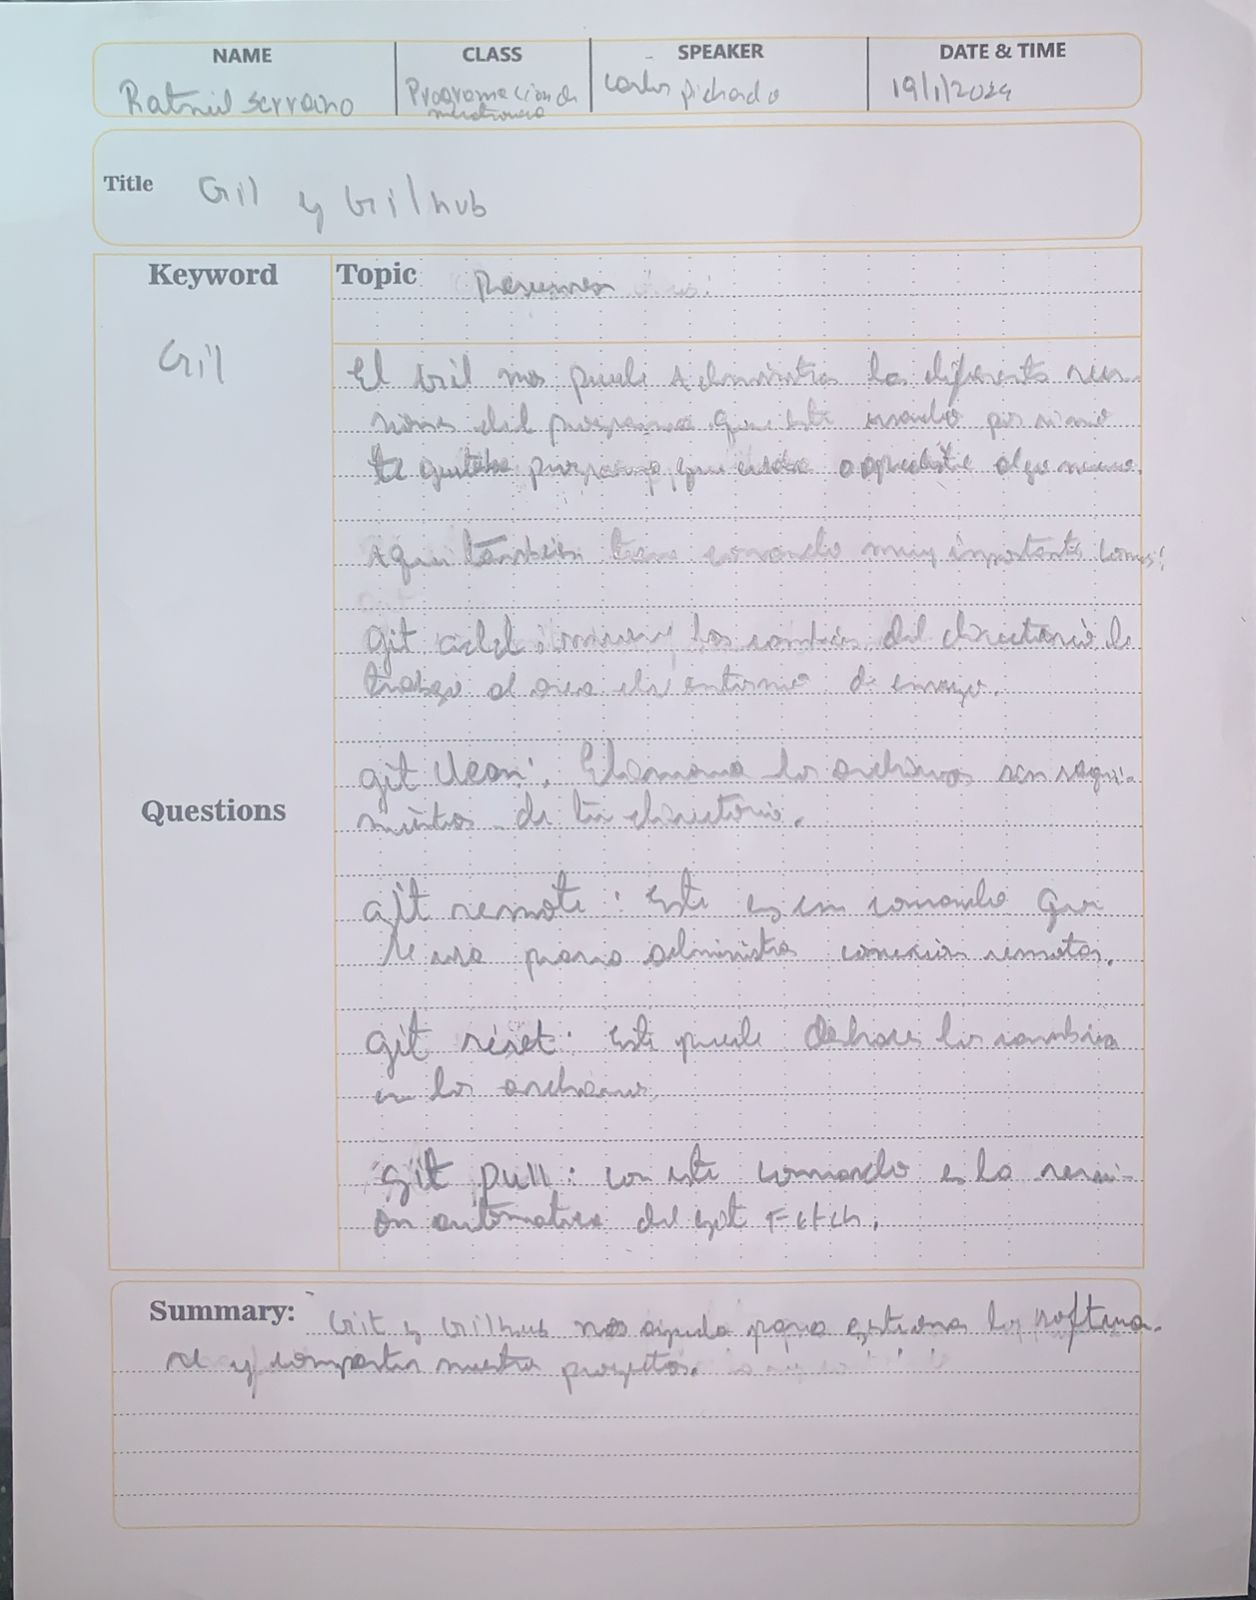 NAME CLASS SPEAKER DATE & TIME
Ratniel Serrano Programacion de Carlos Pichardo 19/1/2024
Title Git y Github
Keyword Topic Resumen
Git
El Git nos puede Administra los diferente ver-
siones del programa que este usando por si no
te programa, que algo nuevo.
Aqui también tiene comando muy importante como:
git add: mueve los cambios del directorio de
trabajo al area del entorno de ensayo.
git clean: Elimina los archivos sen segui-
mientos de tu directorio.
Questions
git remote: Este es un comando que
se usa para administra conexión remotas.
git reset: Este puede deshacer los cambios
en los archivos.
git pull: con este comando es la versi-
ón automatica del git Fetch.
Summary: Git y Github nos ayuda para gestiona los softwa-
re y compartir nuestro proyectos.